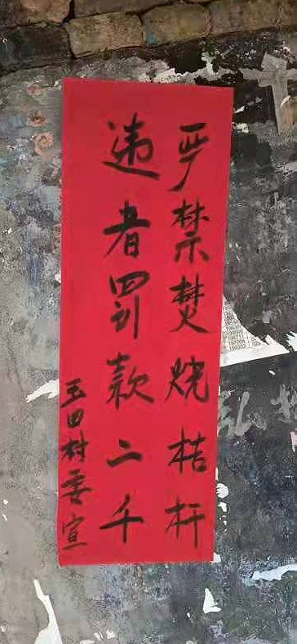 严禁焚烧桔杆
违者罚款二千
玉田村委宣